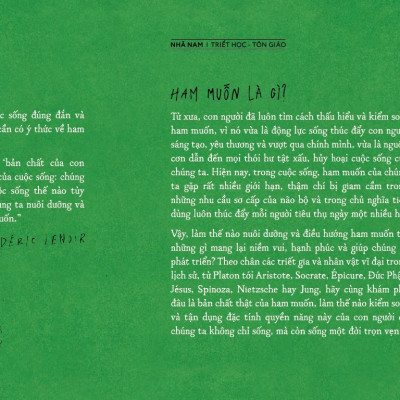 c sống đúng đắn và
cần có ý thức về ham
‘bản chất của con
của cuộc sống: chúng
ộc sống thế nào tùy
ng ta nuôi dưỡng và
uốn.”
DÉRIC LENOIR
NHÃ NAM | TRIẾT HỌC - TÔN GIÁO
HAM MUỐN LÀ GÌ?
Từ xưa, con người đã luôn tìm cách thấu hiểu và kiểm so
ham muốn, vì nó vừa là động lực sống thúc đẩy con ngư
sáng tạo, yêu thương và vượt qua chính mình, vừa là nguồ
cơn dẫn đến mọi thói hư tật xấu, hủy hoại cuộc sống củ
chúng ta. Hiện nay, trong cuộc sống, ham muốn của chún
ta gặp rất nhiều giới hạn, thậm chí bị giam cầm tron
những nhu cầu sơ cấp của não bộ và trong chủ nghĩa tiê
dùng luôn thúc đẩy mỗi người tiêu thụ ngày một nhiều h
Vậy, làm thế nào nuôi dưỡng và điều hướng ham muốn t
những gì mang lại niềm vui, hạnh phúc và giúp chúng
phát triển? Theo chân các triết gia và nhân vật vĩ đại tron
lịch sử, từ Platon tới Aristote, Socrate, Épicure, Đức Phậ
Jésus, Spinoza, Nietzsche hay Jung, hãy cùng khám ph
đâu là bản chất thật của ham muốn, làm thế nào kiểm so
và tận dụng đặc tính quyền năng này của con người
chúng ta không chỉ sống, mà còn sống một đời trọn vẹn